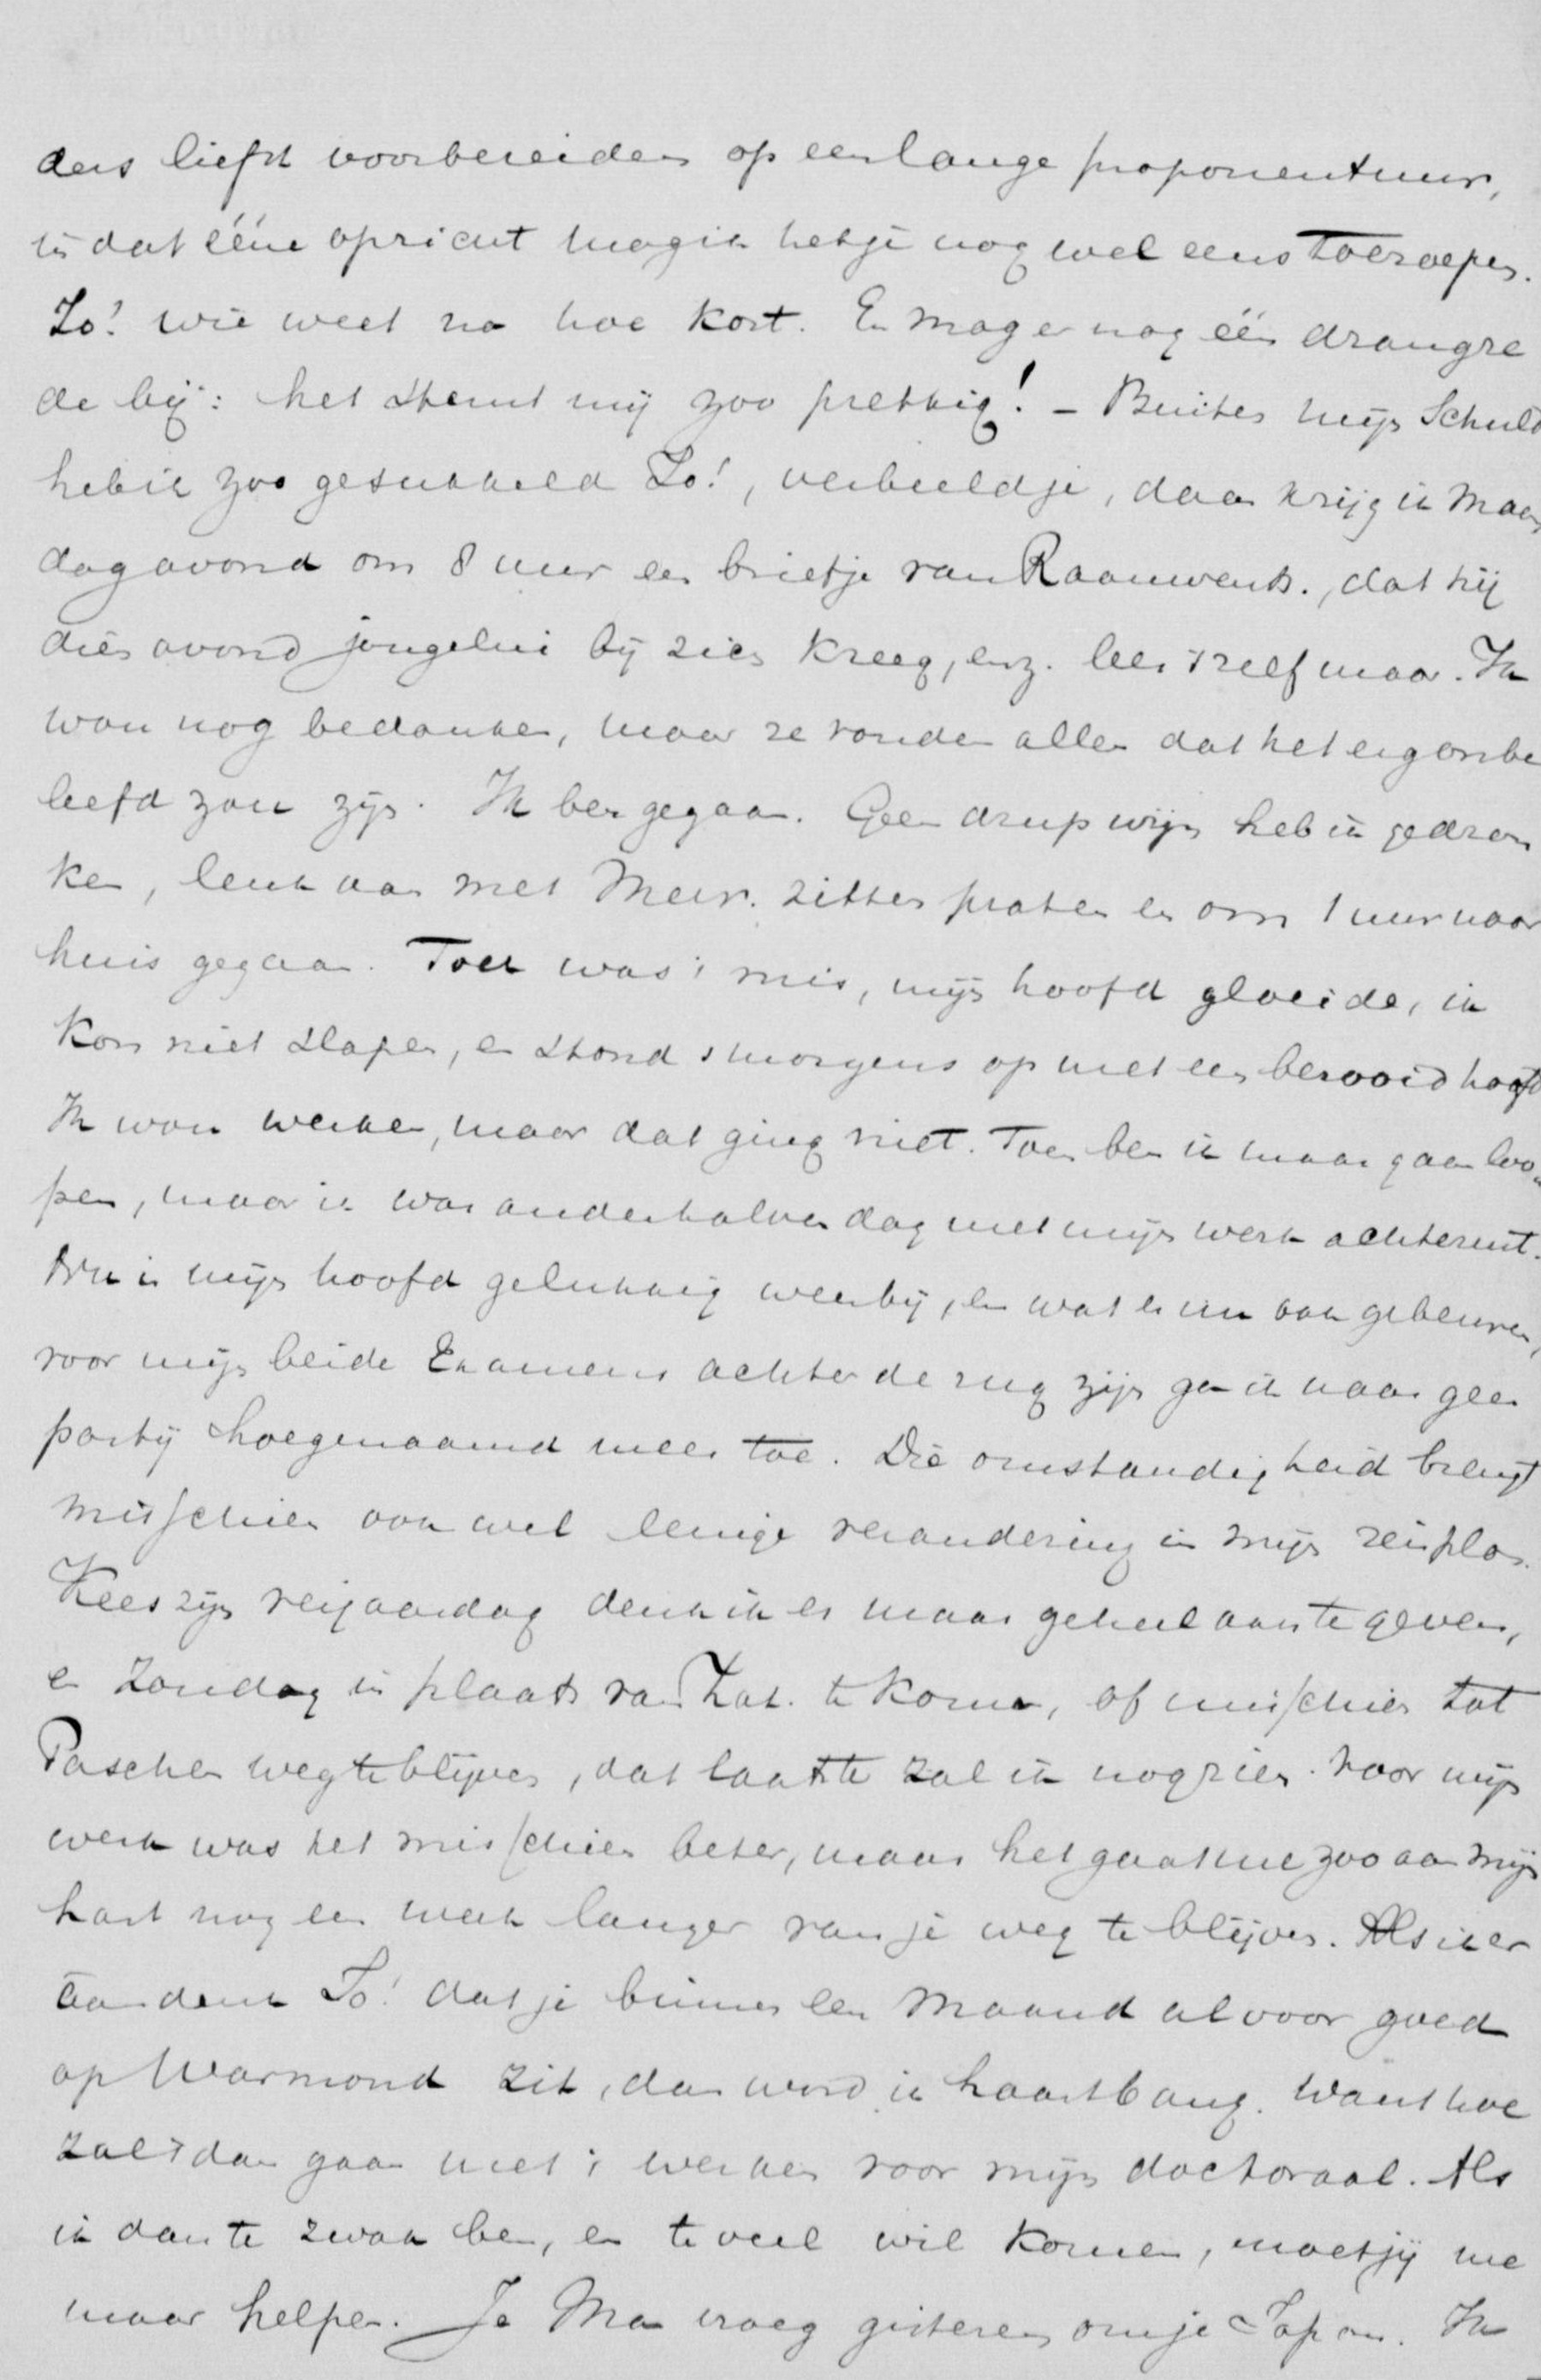 ders liefst voorbereiden op een lange proponentuur,
in dat ééne opzicht mag ik het je nog wel eens toeroepen.
Jo! wie weet na hoe kort. En mag er nog één drangre
de bij: het stemt mij zoo prettig! – Buiten mijn Schuld
heb ik zoo gesukkeld Jo!, verbeeld je, daar krijg ik Maan
dagavond om 8 uur een briefje van Raamwerk., dat hij
dien avond jongelui bij zich kreeg, enz. lees 't zelf maar. Ik
wou nog bedanken, maar ze vonden allen dat het erg onbe
leefd zou zijn. Ik ben gegaan. Geen drup wijn heb ik gedron
ken, leuk aan met Mevr. zitten praten en om 1 uur naar
huis gegaan. Toen was 't mis, mijn hoofd gloeide, ik
kon niet slapen, en stond 's morgens op met een berooid hoofd
Ik wou werken, maar dat ging niet. Toen ben ik maar gaan loo
pen, maar ik was anderhalven dag met mijn werk achteruit.
Nu is mijn hoofd gelukkig weer bij, en wat er nu ook gebeure,
voor mijn beide Examens achter de rug zijn ga ik naar geen
partij hoegenaamd meer toe. Die omstandigheid brengt
misschien ook wel eenige verandering in mijn reisplan.
Kees zijn verjaardag denk ik er maar geheel aan te geven,
en Zondag in plaats van Zat. te komen, of misschien tot
Paschen weg te blijven, dat laatste zal ik nog zien. Voor mijn
werk was het misschien beter, maar het gaat me zoo aan mijn
hart nog een week langer van je weg te blijven. Als ik er
aan denk Jo! dat je binnen een Maand al voor goed
op Warmond zit, dan word ik haast bang. Want hoe
zal 't dan gaan met 't werken voor mijn doctoraal. Als
ik dan te zwak ben, en te veel wil komen, moet jij me
maar helpen. Je Ma vroeg gisteren om je Japon. Ik